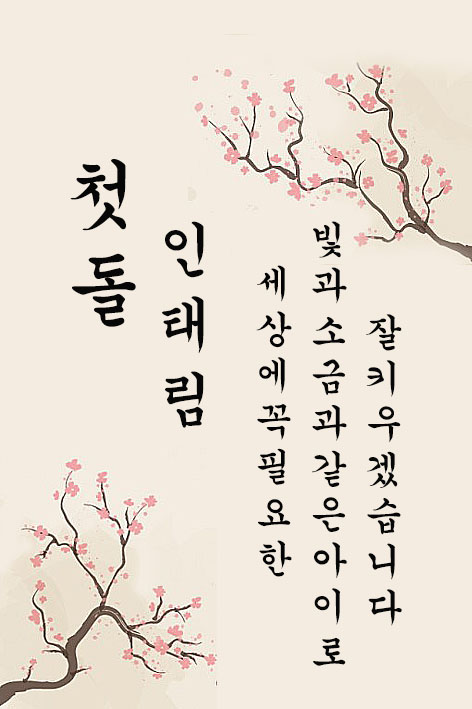 첫돌
인태림
세상에꼭필요한
빛과소금과같은아이로
잘키우겠습니다